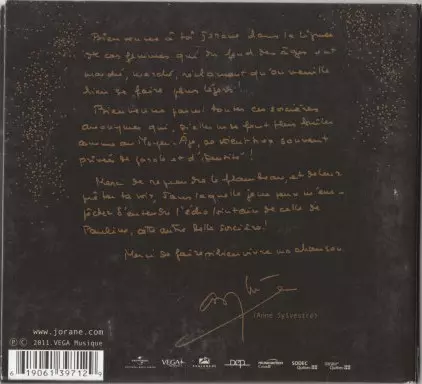 Bienvenue à toi Jorane dans la lignée
de ces femmes qui du fond des âges ont
marché, marché, réclamant qu'on veuille
bien se faire plus légers!
Bienvenue parmi toutes ces sorcières
anonymes qui, si elles ne se font plus brûler
comme au Moyen-Âge, se voient trop souvent
privées de parole et d'
Merci de reprendre le flambeau, et de leur
prêter ta voix, dans laquelle je ne peux m'em-
pêcher d'entendre l'écho lointain de celle de
Pauline, cette autre belle sorcière!
Merci de faire si bien vivre ma chanson
(Anne Sylvestre)
www.jorane.com
Ⓟ Ⓒ 2011 VEGA Musique
6 19061 39712 9
UNIVERSAL
VEGA
DEP
MUSICACTION
SODEC
Québec
Québec